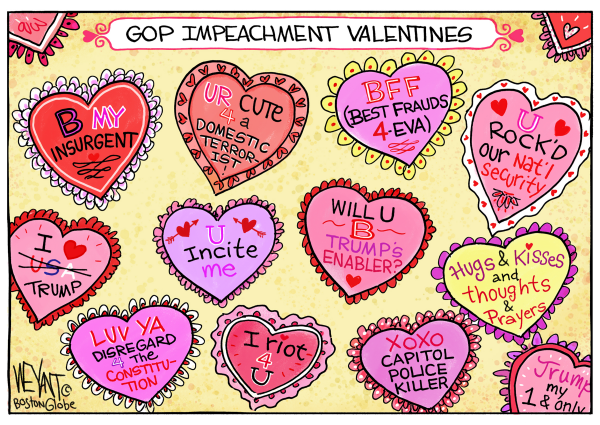 GOP IMPEACHMENT VALENTINES
B MY
INSURGENT
UR CUTE
4 a
DOMESTIC
TERROR
IST
BFF
(BEST FRAUDS
4-EVA)
U
ROCK'D
our Nat'l
security
I
USA
TRUMP
U
Incite
me
WILL U
B
TRUMP'S
ENABLER?
Hugs & Kisses
and
thoughts
&
Prayers
LUV YA
DISREGARD
4 The
CONSTITU-
TION
I riot
4
U
XOXO
CAPITOL
POLICE
KILLER
Trump
my
1 & only
WEYANT ©
BOSTON Globe